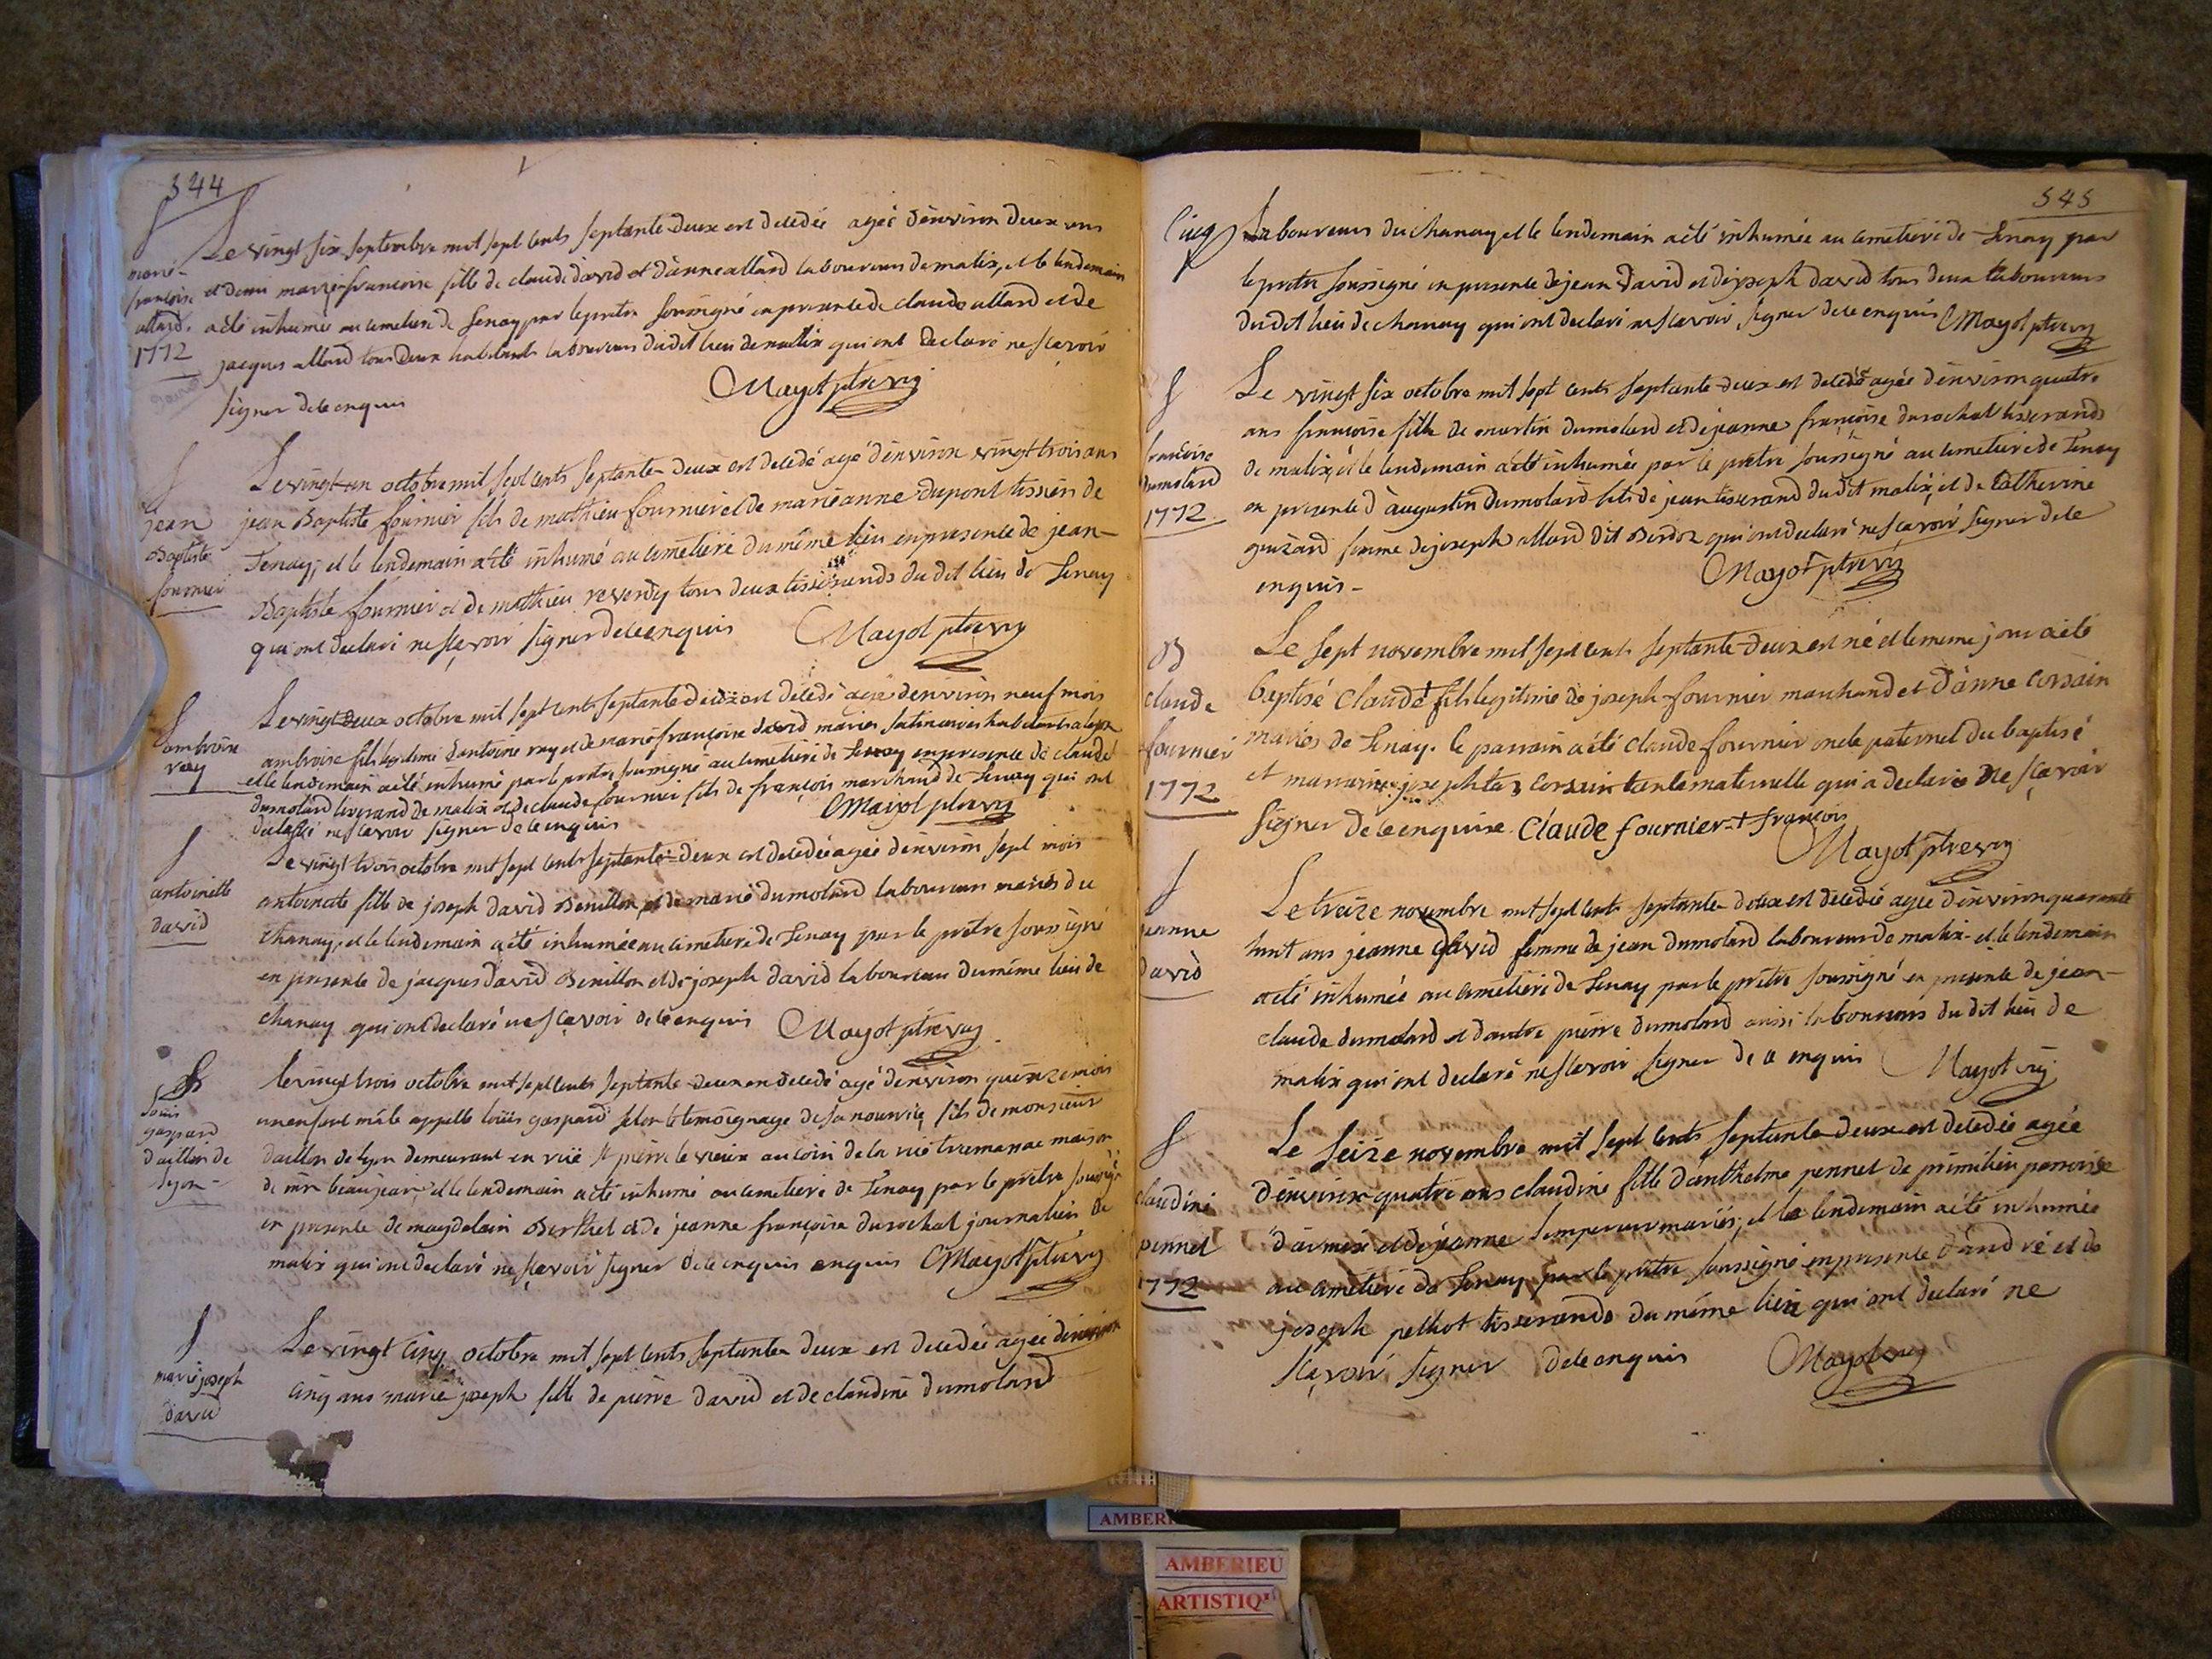 344
Le vingt six septembre mil sept cents septante deux est decedée agée d'environ deux ans
marie-
françoise
allard.
1772
et demi marie françoise fille de claude david et d'anne allard laboureurs de malix, et le lendemain
a été inhumée au cemetiere de Tenay par le pretre soussigné en presence de claude allard et de
jacques allard tous deux habitants laboureurs dudit lieu de malix qui ont declaré ne sçavoir
signer de ce enquis
Mayot ptre vic
Le vingt un octobre mil sept cents septante deux est decedé agé d'environ vingt trois ans
jean
Baptiste
fournier
jean Baptiste fournier fils de mathieu fournier et de marie anne dupont tissiers de
Tenay, et le lendemain a été inhumé au cemetiere du même lieu en presence de jean-
Baptiste fournier et de mathieu reverdy tous deux tisserands du dit lieu de Tenay
qui ont declaré ne sçavoir signer de ce enquis Mayot ptre vic
Le vingt deux octobre mil sept cents septante deux est decedé agé d'environ neuf mois
ambroise
rey
ambroise fils legitime d'antoine rey et de marie françoise david mariés habitants a lyon
et le lendemain a été inhumé par le pretre soussigné au cemetiere de Tenay en presence de claude
dumolard tisserand de malix et de claude fournier fils de françois marchand de Tenay qui ont
declaré ne sçavoir signer de ce enquis Mayot ptre vic
Le vingt trois octobre mil sept cents septante-deux est decedée agée d'environ sept mois
antoinette
david
antoinette fille de joseph david Benillon et de marie dumolard laboureurs mariés du
chanay, et le lendemain a été inhumée au cimetiere de Tenay par le prêtre soussigné
en presence de jacques david Benillon et de joseph david laboureurs du même lieu de
chanay qui ont declaré ne sçavoir de ce enquis Mayot ptre vic
le vingt trois octobre mil sept cents septante deux est decedé agé d'environ quinze mois
louis
gaspard
d'aillon de
lyon-
un enfant mâle appellé loüis gaspard selon le temoignage de sa nourrice, fils de monsieur
daillon de lyon demeurant en rüe St pierre le vieux au coin de la rüe tramassac maison
de mr beaujean, et le lendemain a été inhumé au cemetiere de Tenay par le prêtre soussigné
en presence de magdelain Berthet et de jeanne françoise durochat journaliers de
malix qui ont declaré ne sçavoir signer de ce enquis enquis Mayot ptre vic
Le vingt cinq octobre mil sept cents septante deux est decedée agée d'environ
marie joseph
david
cinq ans marie joseph fille de pierre david et de claudine dumolard
345
laboureurs du chanay et le lendemain a été inhumée au cemetiere de Tenay par
le pretre soussigné en presence de jean david et de joseph david tous deux laboureurs
du dit lieu de chanay qui ont declaré ne sçavoir signer de ce enquis Mayot ptre vic
Le vingt six octobre mil sept cents septante-deux est decedée agée d'environ quatre
françoise
dumolard
1772
ans françoise fille de martin dumolard et de jeanne françoise durochat tisserands
de malix, et le lendemain a été inhumée par le pretre soussigné au cemetiere de Tenay
en presence d'augustin dumolard fils de jean tisserand du dit malix, et de Catherine
guizard femme de joseph allard dit Berdoz qui ont declaré ne sçavoir signer de ce
enquis- Mayot ptre vic
B
claude
fournier
1772
Le sept novembre mil sept cents septante-deux est né et le meme jour a été
baptisé claude fils legitime de joseph fournier marchand et d'anne corsain
mariés de Tenay. le parrain a été claude fournier oncle paternel du baptisé
et marraine josephte corsain tante maternelle qui a declaré ne sçavoir
signer de ce enquise. Claude fournier + françois
Mayot ptre vic
jeanne
david
Le treize novembre mil sept cents septante deux est decedée agée d'environ quarante
huit ans jeanne david femme de jean dumolard laboureur de malix- et le lendemain
a été inhumée au cemetiere de Tenay par le prêtre soussigné en presence de jean-
claude dumolard et d'autre pierre dumolard aussi laboureurs du dit lieu de
malix qui ont declaré ne sçavoir signer de ce enquis Mayot vic
claudine
pennet
1772
Le seize novembre mil sept cents septante deux est decedée agée
d'environ quatre ans claudine fille d'anthelme pennet de primilieu parroisse
d'armix et de jeanne lempereur mariés, et le lendemain a été inhumée
au cemetiere de Tenay par le prêtre soussigné en presence d'andré et de
joseph pelliot tisserands du même lieu qui ont declaré ne
sçavoir signer de ce enquis Mayot vic
AMBERIEU
ARTISTIQ